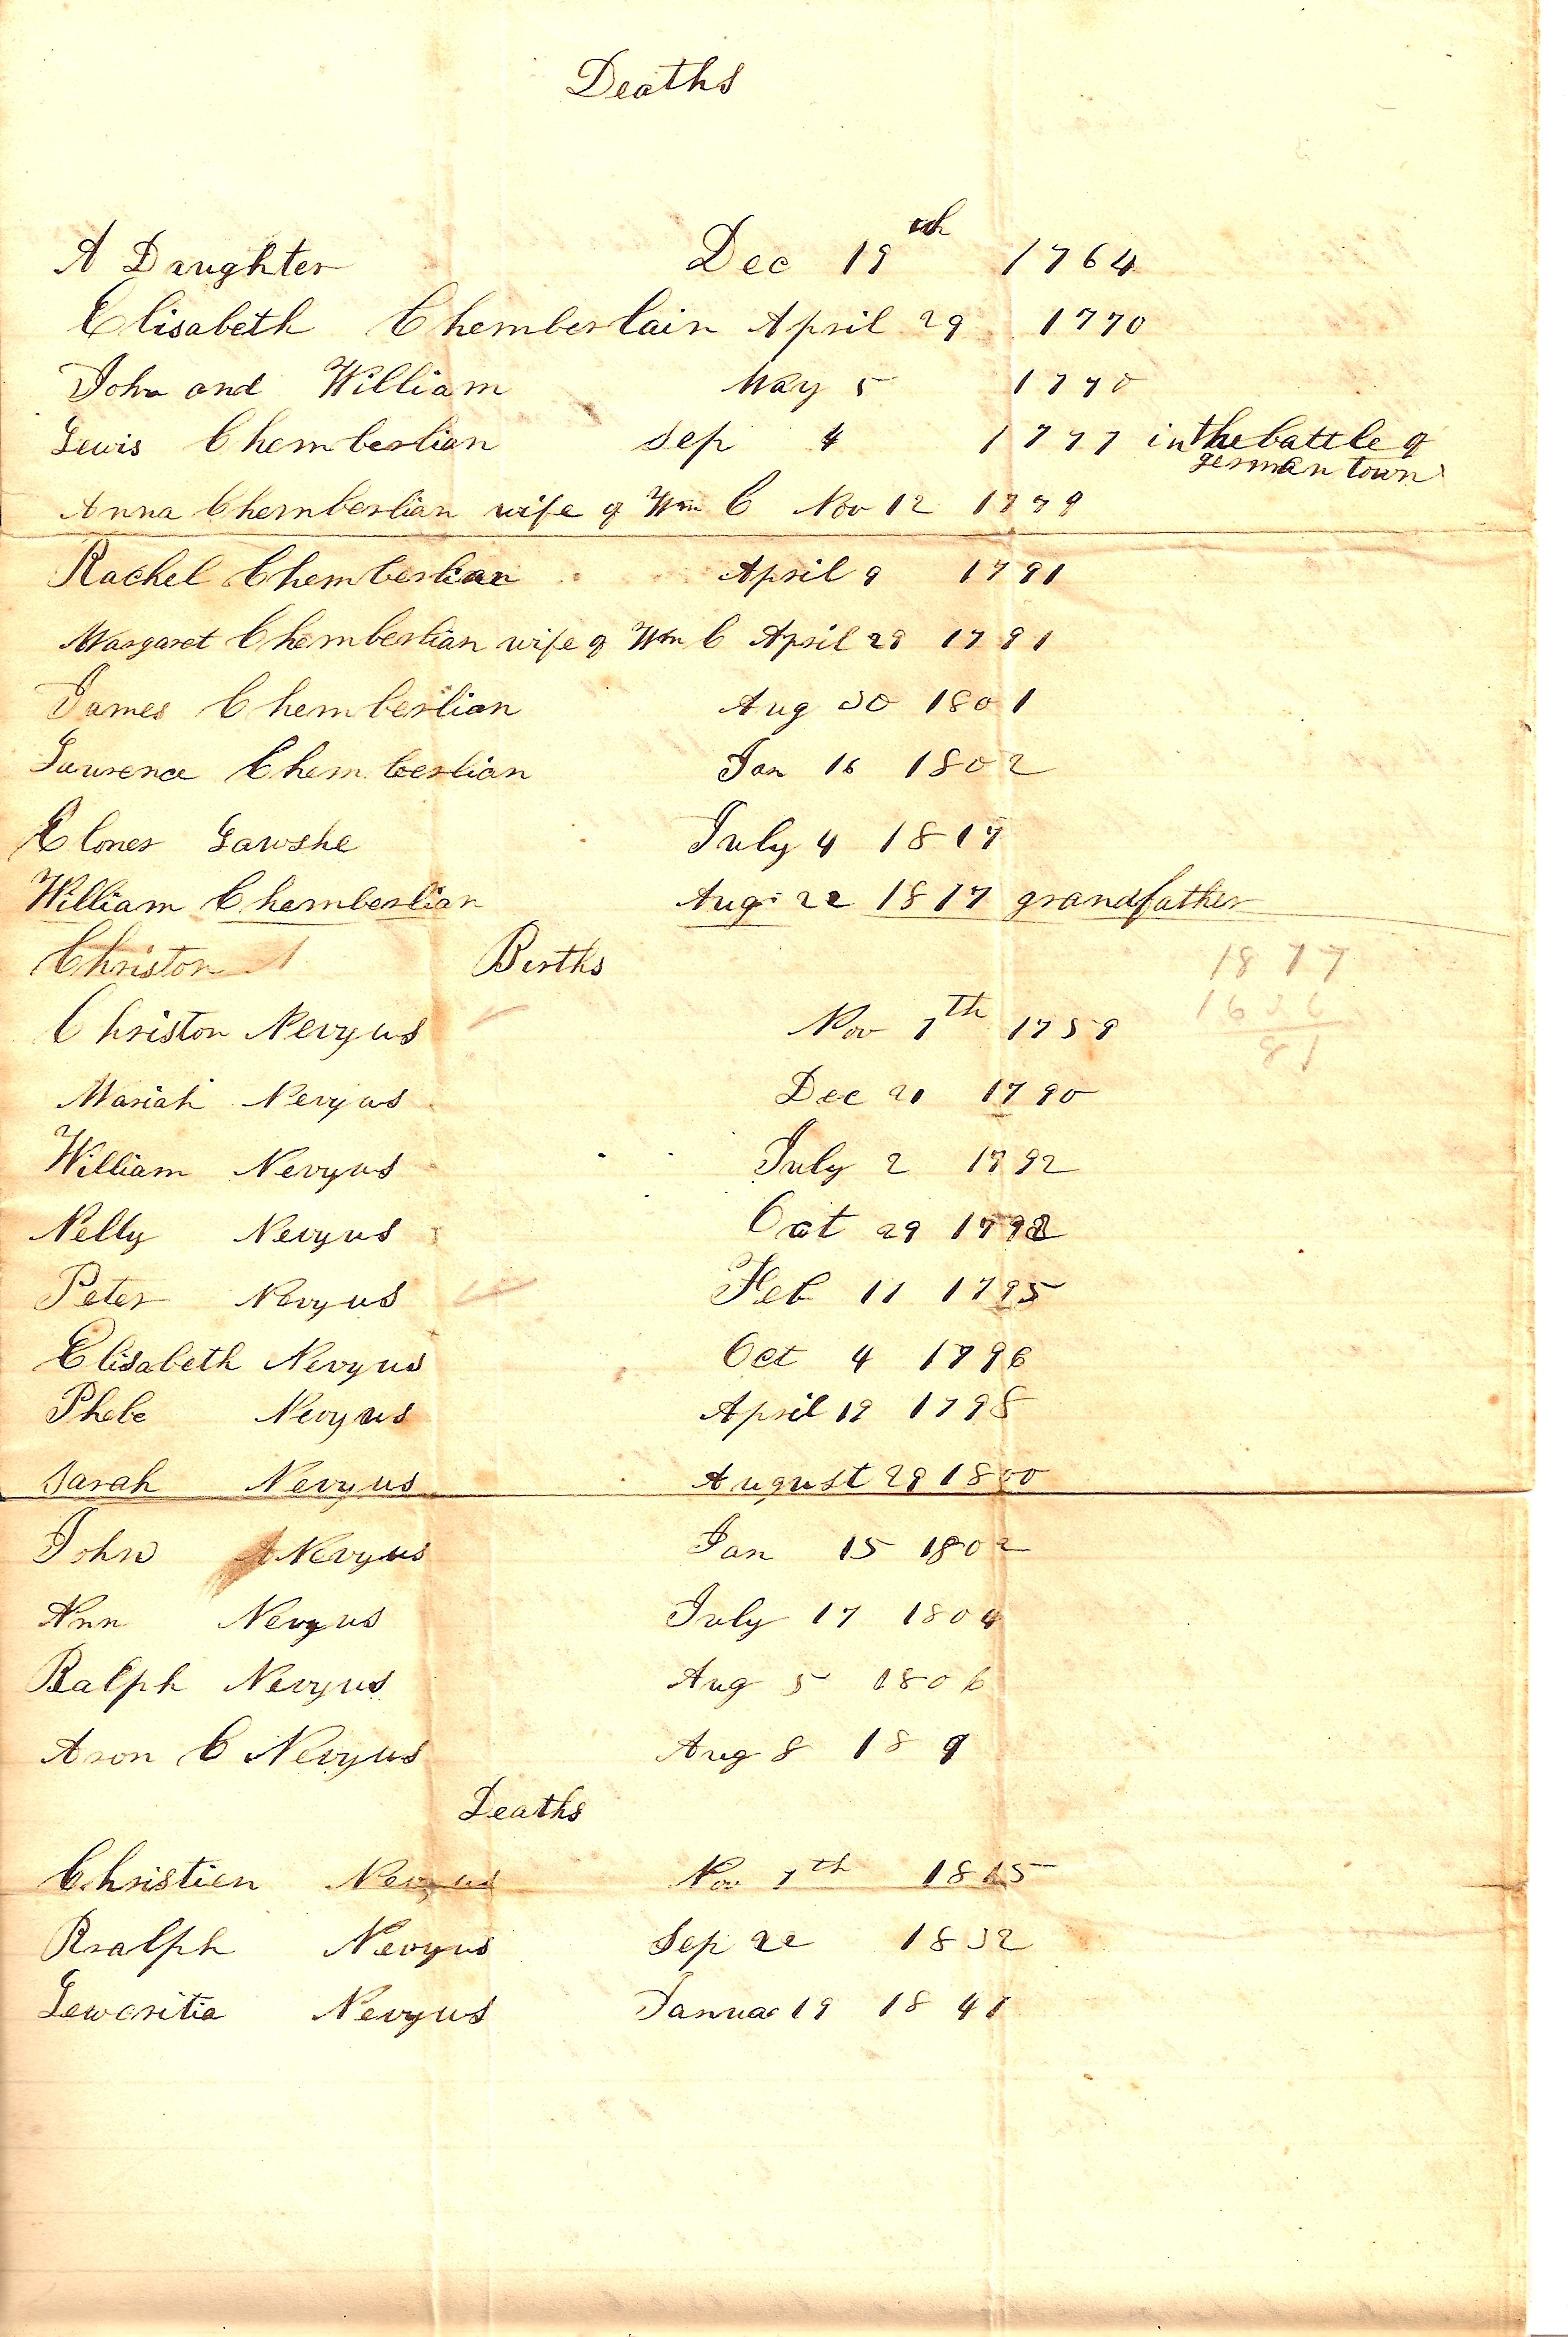 Deaths
A Daughter Dec 19th 1764
Elisabeth Chemberlain April 29 1770
John and William May 5 1770
Lewis Chemberlian Sep 4 1777 in the battle of
german town
Anna Chemberlian wife of Wm C Nov 12 1779
Rachel Chemberlian April 9 1791
Margaret Chemberlian wife of Wm C April 29 1791
James Chemberlian Aug 30 1801
Laurence Chemberlian Jan 16 1802
Eloner Lawshe July 4 1817
William Chemberlian Aug 22 1817 grandfather
Christon Births
1817
Christon Nevyus Nov 7th 1759
81
Mariah Nevyus Dec 21 1790
William Nevyus July 2 1792
Nelly Nevyus Oct 29 179
Peter Nevyus Feb 11 1795
Elisabeth Nevyus Oct 4 1796
Phebe Nevyus April 19 1798
Sarah Nevyus August 29 1800
John Nevyus Jan 15 1802
Ann Nevyus July 17 1804
Ralph Nevyus Aug 5 1806
Aron C Nevyus Aug 8 18 9
Deaths
Christien Nevyus Nov 7th 1815
Rralph Nevyus Sep 22 1832
Lewcritia Nevyus Janua 19 1841